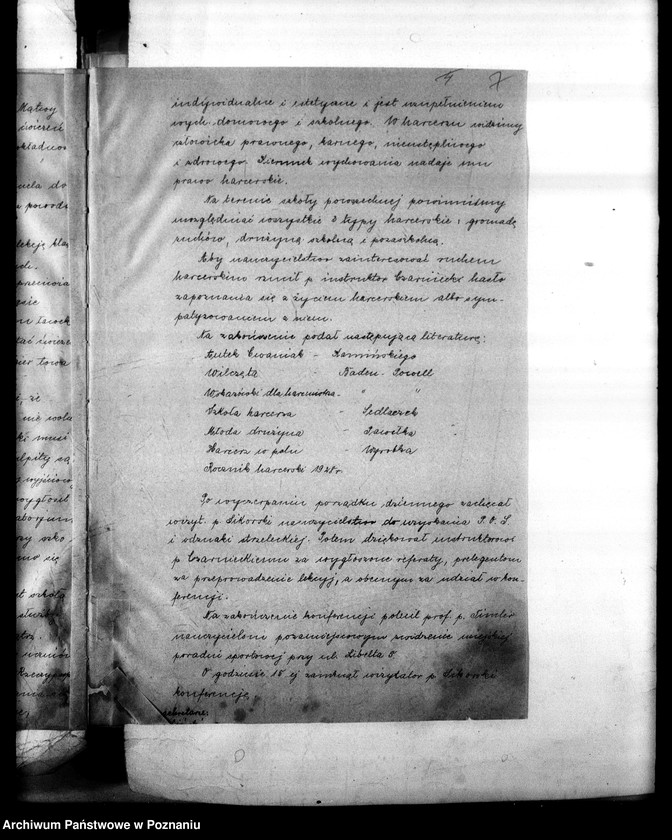 7
indywidualne i estetyczne i jest uzupełnieniem
wych. domowego i szkolnego. W harcerzu widzimy
człowieka prawnego, karnego, nieustępliwego
i zdrowego. Kierunek wychowania nadaje mu
prawo harcerskie.
Na terenie szkoły powszechnej powinniśmy
uwzględniać wszystkie 3 typy harcerskie: gromadę
zuchów, drużynę szkolną i pozaszkolną.
Aby nauczycielstwo zainteresować ruchem
harcerskim rzucił p. instruktor Czarniecki hasło
zapoznania się z życiem harcerskiem albo sym-
patyzowaniem z niem.
Na zakończenie podał następującą literaturę:
Antek Cwaniak - Kamińskiego
Wilczęta - Baden-Powell
Wskazówki dla harcmistrza - " "
Szkoła harcerza - Sedlaczek
Młoda drużyna - Pawełka
Harcerz w polu - Wyrobka
Rocznik harcerski 1928r.
Po wyczerpaniu porządku dziennego zachęcał
wizyt. p. Sikorski nauczycielstwo do uzyskania P.O.S.
i odznaki strzeleckiej. Potem dziękował instruktorowi
p. Czarnieckiemu za wygłoszone referaty, prelegentom
za przeprowadzenie lekcyj, a obecnym za udział w kon-
ferencji.
Na zakończenie konferencji polecił prof. p.
nauczycielom pozamiejscowym zwiedzenie miejskiej
poradni sportowej przy ul. Libelta
O godzinie 15 ej zamknął wizytator p. Sikorski
konferencję.
sekretarz:
Archiwum Państwowe w Poznaniu